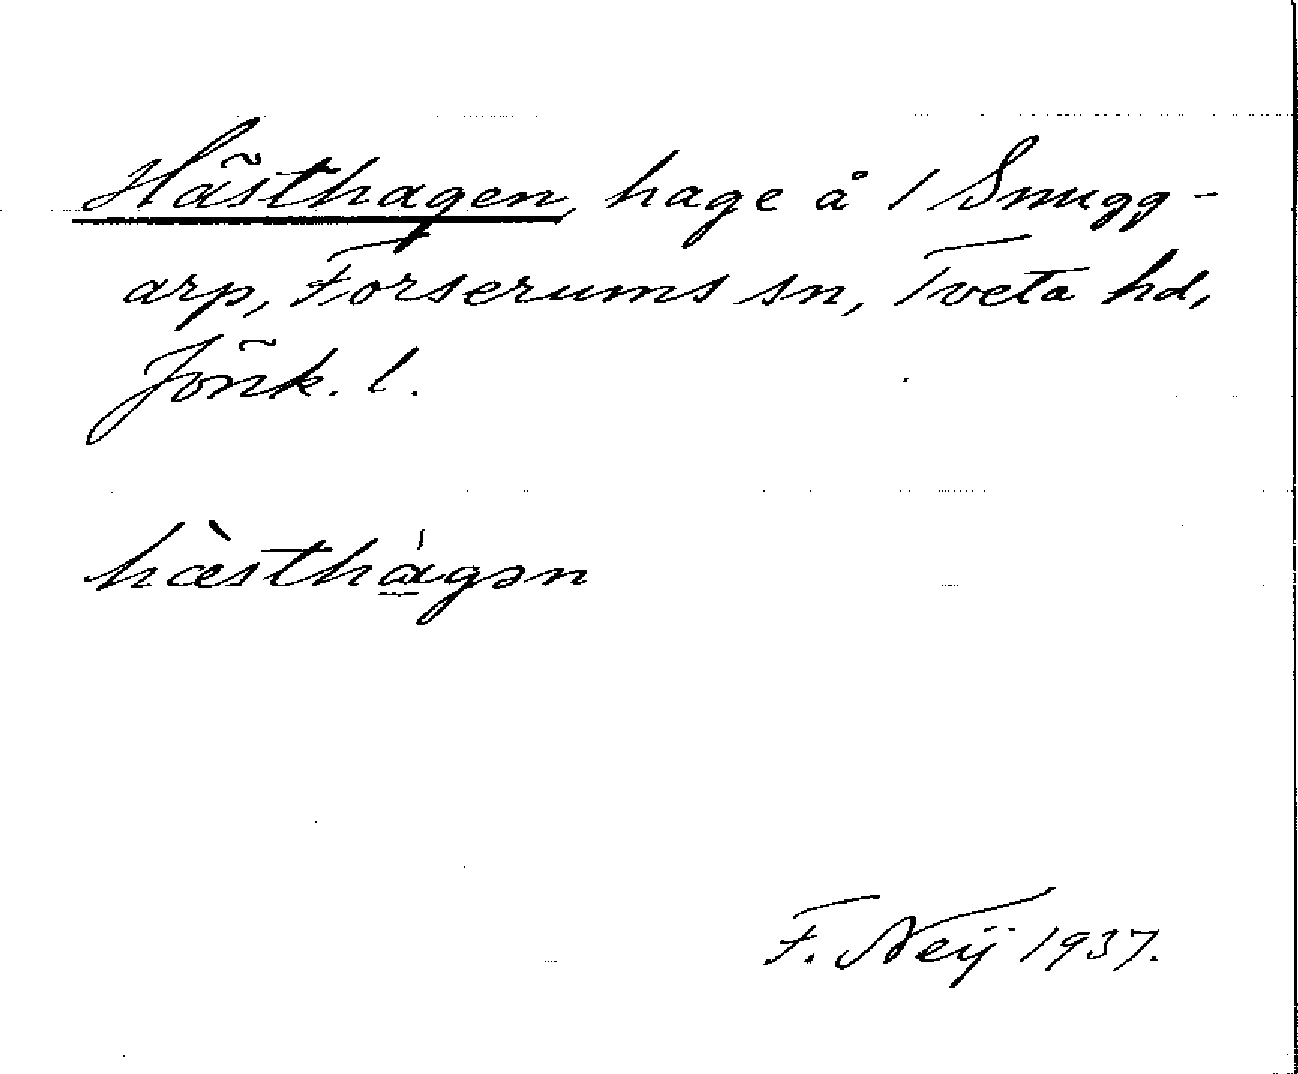 Hästhagen, hage å 1 Snugg-
arp, Forserums sn, Tveta hd,
Jönk. l.
hæ̀sthàgən
F. Neij 1937.